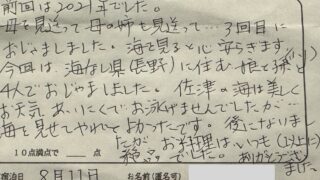 前回は2021年でした。
母を見送って→母の姉も見送って…3回目に
おじゃましました。海を見ると心安らぎます
今回は、海なし県(長野)に住む娘と孫と
4人でおじゃましました。佐津の海は美しく
お天気あいにくでお泳げませんでしたが…
海を見せてやれてよかったです。後になりまし
たが お料理はいつも(以上に)
絶品でした。ありがとうござい
ました。
10点満点で 点
宿泊日 8月11日 お名前(匿名可)